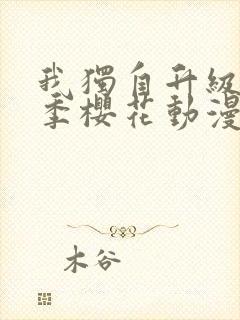 我獨自升級
季櫻花動漫
木谷